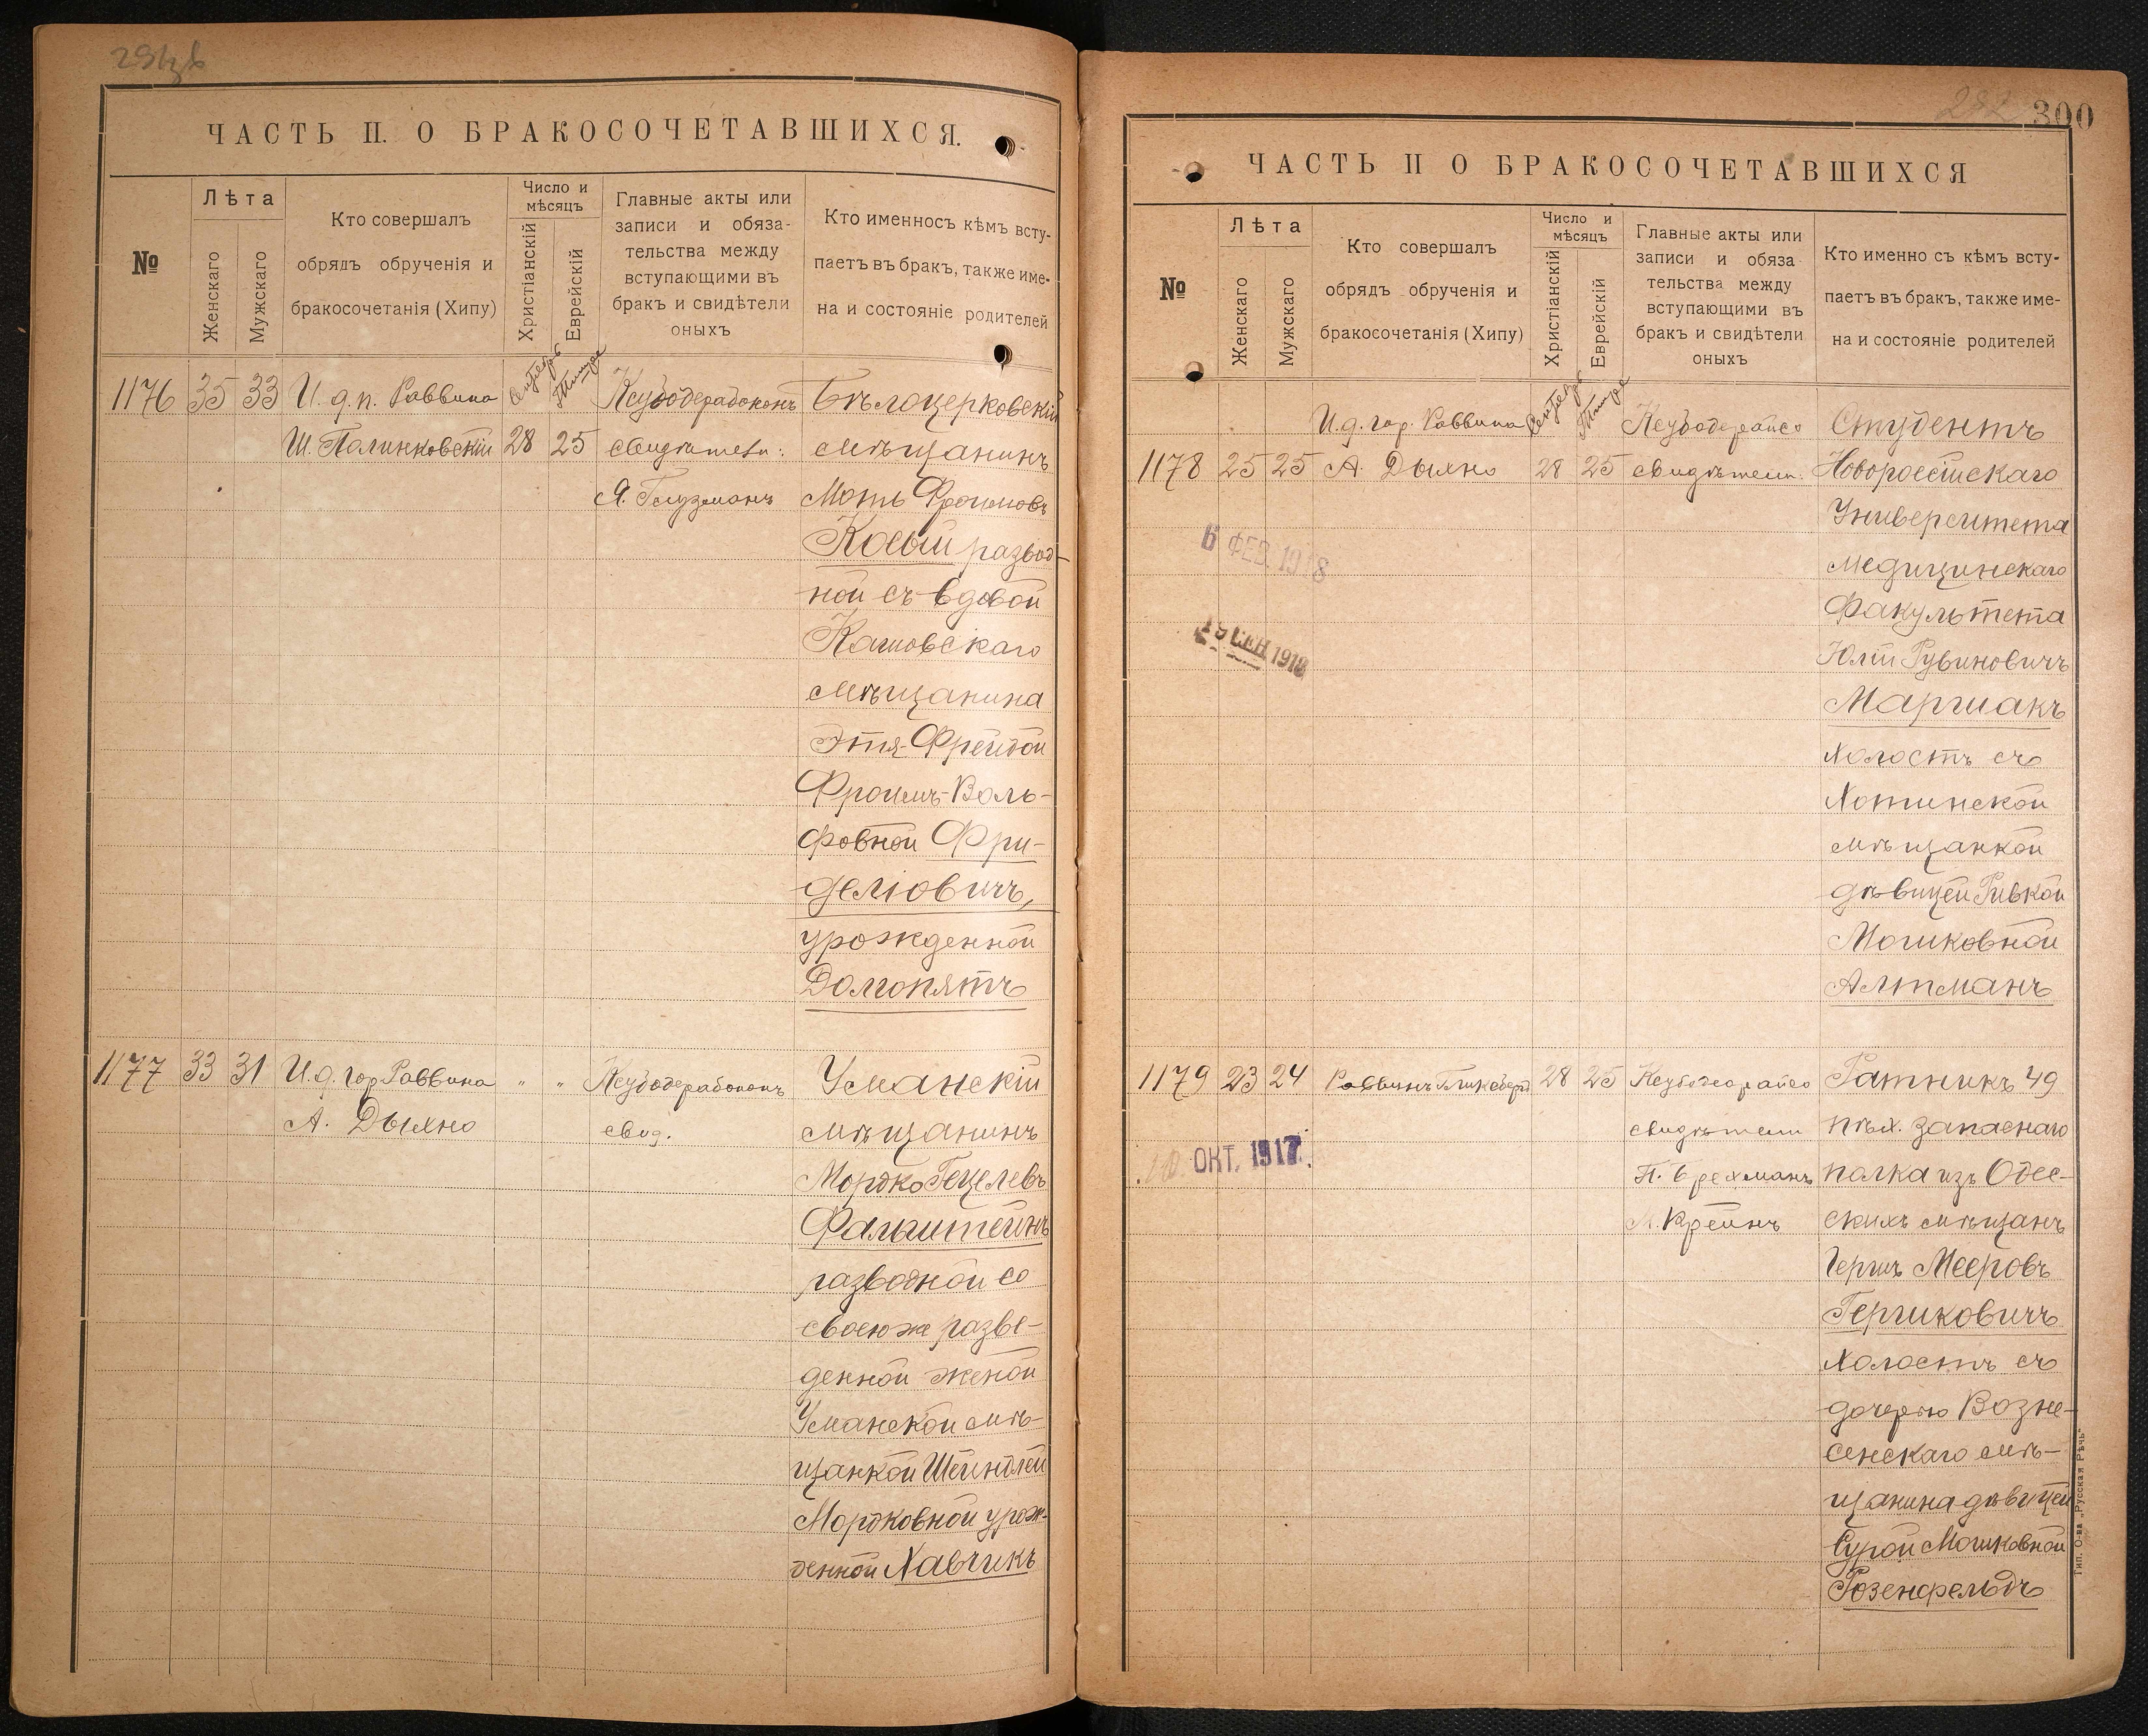 ЧАСТЬ II. О БРАКОСОЧЕТАВШИХСЯ.
№
Лѣта
Женскаго
Мужскаго
Кто совершалъ
обрядъ обрученія и
бракосочетанія (Хипу)
Число и
мѣсяцъ
Христіанскій
Еврейскій
Главные акты или
записи и обяза-
тельства между
вступающими въ
бракъ и свидѣтели
оныхъ
Кто именносъ кѣмъ всту-
паетъ въ бракъ, также име-
на и состояніе родителей
1176 35 33
И. д. п. Раввина
Ш. Палинковскій
Сентябрь
28
Тишре
25
свидѣтели:
Я. Глузманъ
Бѣлоцерковскій
мѣщанинъ
Моть Фроимовъ
Косый развод-
ной съ вдовой
мѣщанина
Этя-Фрейдой
Фроимъ-Воль-
фовной Фри-
деліовичъ,
урожденной
Долгопятъ
1177 33 31
И. д. гор Раввина
А. Дыхно
" "
свид.
Уманскій
мѣщанинъ
Мордко Гецелевъ
Фальштейнъ
разводной со
своею же разве-
денной женой
Уманской мѣ-
щанкой Шейндлей
Мордковной урож-
денной Хавчикъ
300
ЧАСТЬ II О БРАКОСОЧЕТАВШИХСЯ
№
Лѣта
Женскаго
Мужскаго
Кто совершалъ
обрядъ обрученія и
бракосочетанія (Хипу)
Число и
мѣсяцъ
Христіанскій
Еврейскій
Главные акты или
записи и обяза
тельства между
вступающими въ
бракъ и свидѣтели
оныхъ
Кто именно съ кѣмъ всту-
паетъ въ бракъ, также име-
на и состояніе родителей
1178 25 25
И. д. гор. Раввина
А. Дыхно
Сентябрь
28
Тишре
25
свидѣтели:
Студентъ
Новороссійскаго
Университета
медицинскаго
факультета
Юлій Рувиновичъ
Маршакъ
холостъ съ
Хотинской
мѣщанкой
дѣвицей Ривкой
Мошковной
Алтманъ
6 ФЕВ. 1918
19 СЕН. 1918
1179 23 24
Раввинъ
28 25
свидѣтели
П. Брехманъ
Крейнъ
Ратникъ 49
пѣх. запаснаго
полка изъ Одес-
скихъ мѣщанъ
Гершъ Мееровъ
Гершковичъ
холостъ съ
дочерью Возне-
сенскаго мѣ-
щанина дѣвицей
Сурой Мошковной
Розенфельдъ
10 ОКТ. 1917.
Тип. О-ва „Русская Рѣчь“